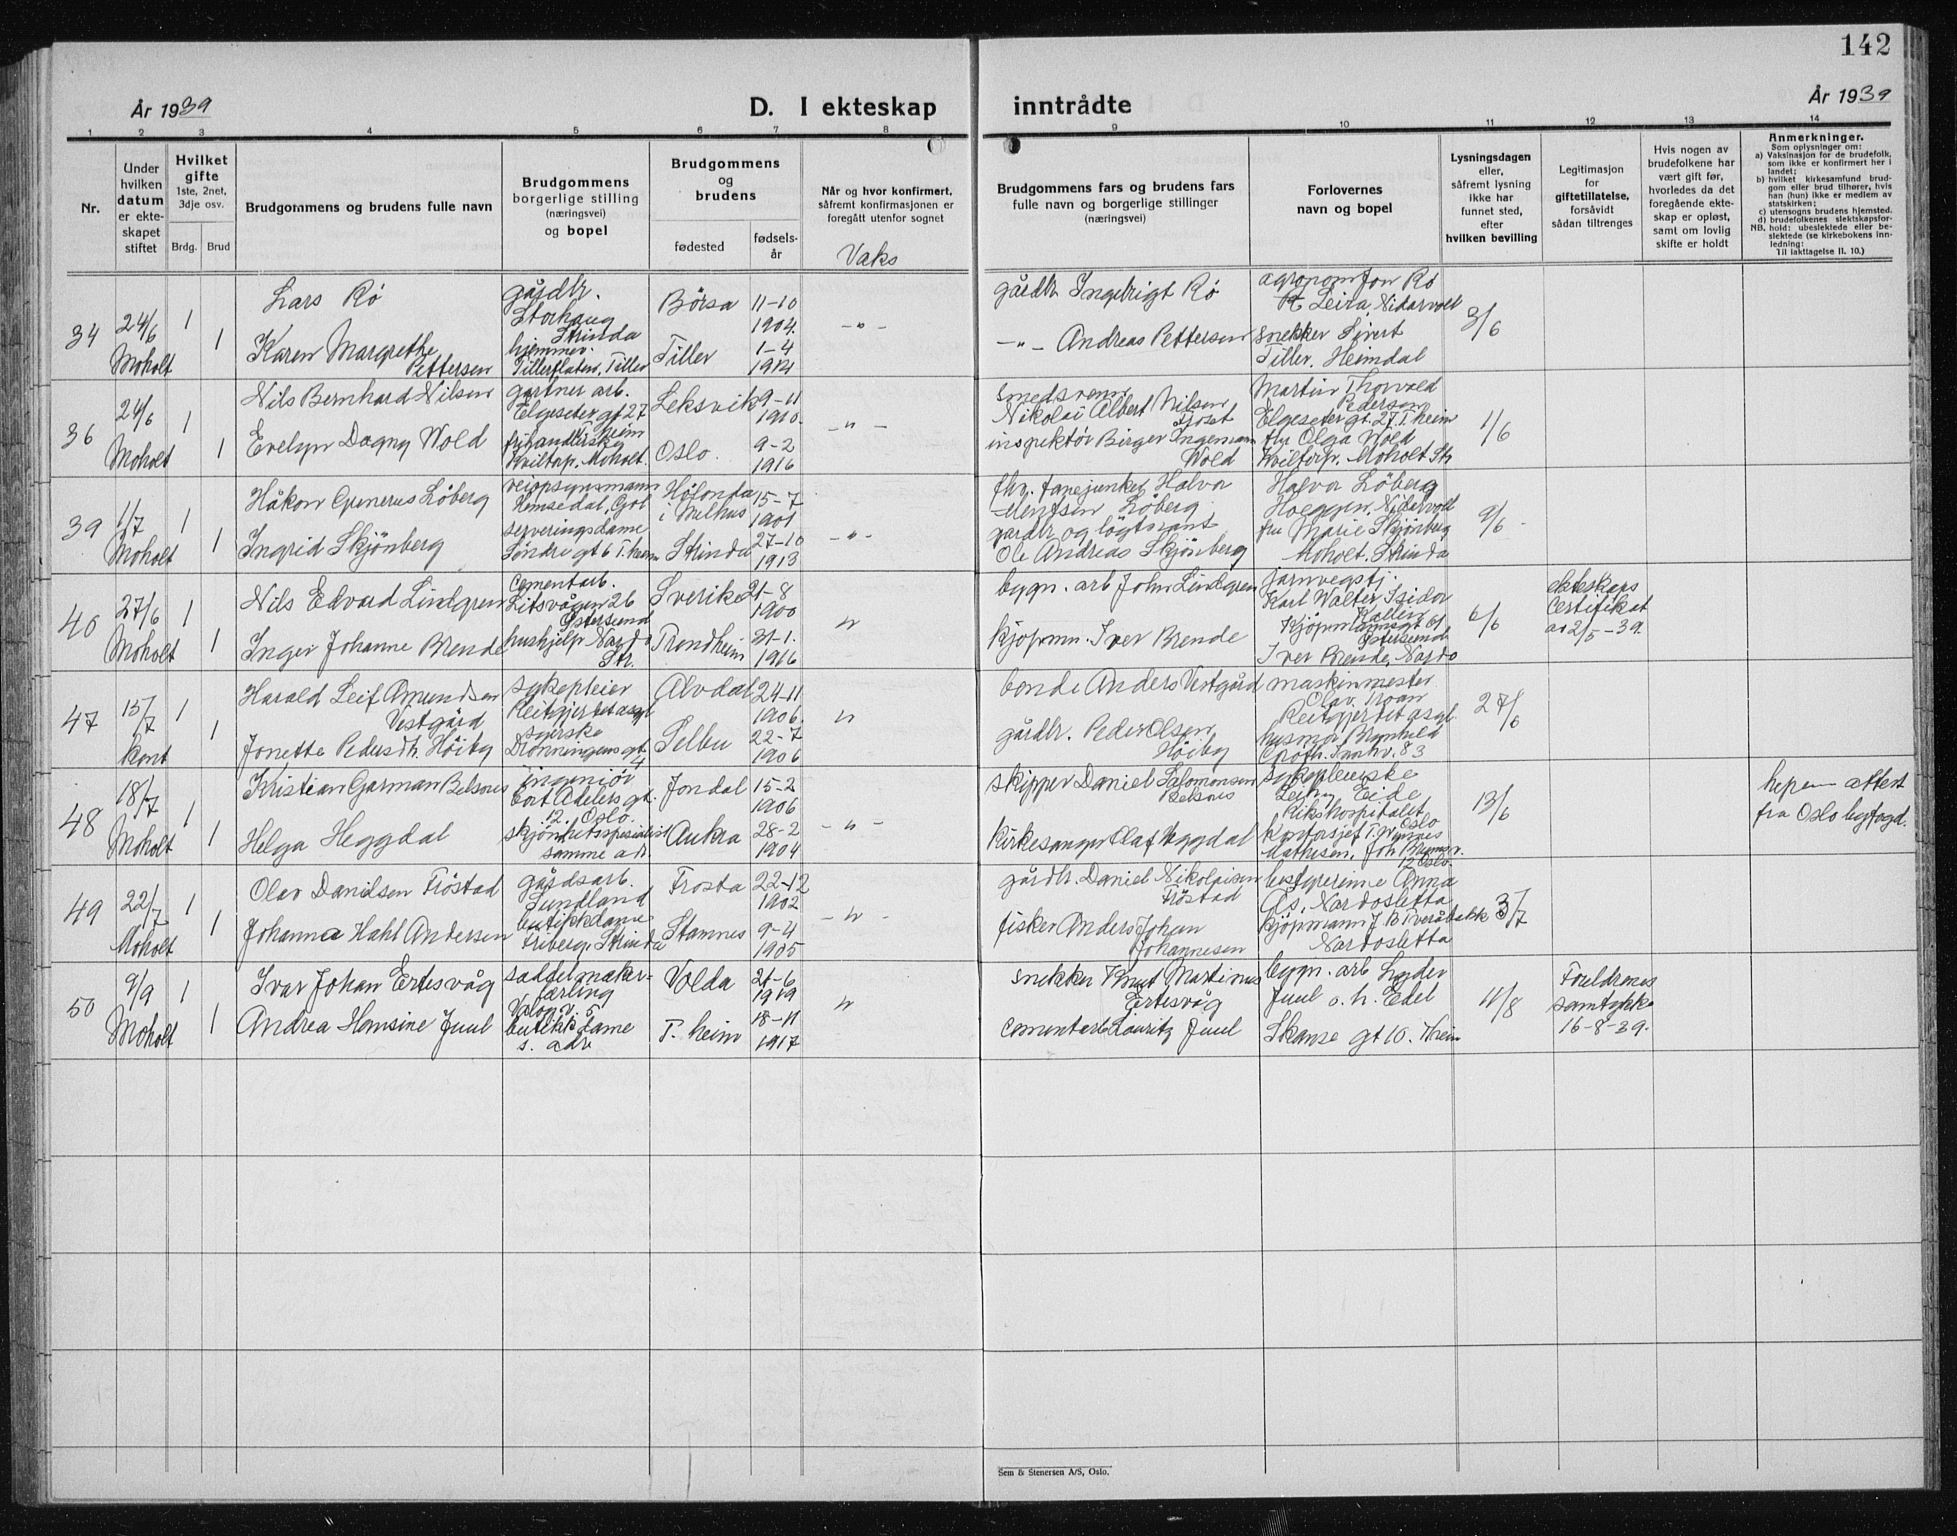 142
År 1939
D. I ekteskap inntrådte
År 1939
1 2 3 4 5 6 7 8 9 10 11 12 13 14
Nr.
Under
hvilken
datum
er ekte-
skapet
stiftet
Hvilket
gifte
1ste, 2net,
3dje osv.
Brdg. Brud
Brudgommens og brudens fulle navn
Brudgommens
borgerlige stilling
(næringsvei)
og bopel
Brudgommens
og
brudens
fødested
fødsels-
år
Når og hvor konfirmert,
såfremt konfirmasjonen er
foregått utenfor sognet
Vaks
Brudgommens fars og brudens fars
fulle navn og borgerlige stillinger
(næringsvei)
Forlovernes
navn og bopel
Lysningsdagen
eller,
såfremt lysning
ikke har
funnet sted,
efter
hvilken bevilling
Legitimasjon
for
giftetillatelse,
forsåvidt
sådan tiltrenges
Hvis nogen av
brudefolkene har
vært gift før,
hvorledes da det
foregående ekte-
skap er opløst,
samt om lovlig
skifte er holdt
Anmerkninger.
Som oplysninger om:
a) Vaksinasjon for de brudefolk,
som ikke er konfirmert her i
landet;
b) hvilket kirkesamfund brud-
gom eller brud tilhører, hvis
han (hun) ikke er medlem av
statskirken;
c) utensogns brudens hjemsted.
d) brudefolkenes slektskapsfor-
NB. hold: ubeslektede eller be-
slektede (se kirkebokens inn-
ledning:
Til iakttagelse II. 10.)
34
24/6
Moholt
1
1
Lars Rø
Karen Margrethe
Pettersen
gårdbr.
Storhaug
Strinda
hjemmev.
Tillerflaten, Tiller
Börsa
Tiller
11-10
1904.
1-4
1914
-"-
gårdbr. Ingebrigt Rø
-"- Andreas Pettersen
agronom Jon Rø
Leira, Nidarvoll
snekker Sivert
Tiller, Heimdal
3/6
36
24/6
Moholt
1
1
Nils Bernhard Nilsen
Evelyn Dagny Wold
gartner arb.
Elgeseter gt 27
T.heim
Kviltorp, Moholt.
Leksvik
Oslo.
9-11
1910.
9-2
1916
-"-
smedsvenn
Nikolai Albert Nilsen
inspektør Birger Ingeman
Wold
Martin Thorvald
Pedersen
Elgeseter gt. 27 T.heim
fru Olga Wold
Kviltorp, Moholt Str
1/6
39
1/7
Moholt
1
1
Håkon Gunerus Löberg
Ingrid Skjönberg
veiopsynsmann
Hemsedal, Gol
serveringsdame
Söndre gt 6 T.heim
Hølonda
i Melhus
Strinda
15-7
1901
27-10
1913
-"-
fhv. fanejunker Halvor
Löberg
gårdbr og løgtnant
Ole Andreas Skjönberg
Halvor Löberg
Hoeggen, Nidarvoll
fru Marie Skjönberg
Moholt, Strinda
9/6
40
27/6
Moholt
1
1
Nils Edvard Lindgren
Inger Johanne Brende
Cementarb.
Litsvågen 26
Östersund
hushjelp Nardo
Str.
Sverike
Trondheim
21-8
1900
31-1.
1916
"
bygn. arb John Lindgren
kjöpmn. Iver Brende
jarnvegstj.
Karl Walter Isidor
Östersund
Iver Brende, Nardo
6/6
ekteskaps
Certifikat
av 2/5-39.
47
15/7
kont
1
1
Harald Leif Amundsen
Vestgård
Jonette Pedersdtr. Höiby
sykepleier
Reitgjerdet asyl
syerske
Dronningens gt.
4
Alvdal
Selbu
24-11
1906.
22-7
1906
"
bonde Anders Vestgård
gårdbr. Peder Olsen
Höiby
maskinmester
Olav Moan
Reitgjerdet asyl
husmor Brynhild
83
27/6
48
18/7
Moholt
1
1
Kristian Garman Belsnes
Helga Heggdal
ingeniör
Cort Adelers gt.
12. Oslo.
skjönhetsspesialist
samme adr.
Jondal
Aukra
15-2
1906
28-2
1904
-"-
skipper Daniel Salomonsen
Belsnes
Kirkesanger Olaf Heggdal
sykepleierske
Eide
Rikshospitalet
Oslo
kontorsjef T. Wernes
Mathisen, Joh Bruns v.
12 Oslo.
13/6
attest
fra Oslo byfogd.
49
22/7
Moholt
1
1
Olav Danielsen Fröstad
Johanna Hahl Andersen
gårdsarb.
Sundland
butikkdame
Friberg, Strinda
Frosta
Stamnes
22-12
1902
9-4
1905
-"-
gårdbr. Daniel Nikolaisen
Fröstad
fisker Anders Johan
Johannesen
bestyrerinne Anna
Ås, Nardosletta
kjöpmann J B Tveråbakk
Nardosletta
3/7
50
9/9
Moholt
1
1
Ivar Johan Ertesvåg
Andrea Hansine Juul
saddelmaker-
lærling
Valøyv. 5
butikkdame
s. adr
Volda
T.heim
21-6
1919
18-11
1917
"
snekker Knut Martinus
Ertesvåg
cementarb Lauritz Juul
bygn. arb Lyder
Juul o. h. Edel
Skanse gt 10. Theim
11/8
Foreldrenes
samtykke
16-8-39.
Sem & Stenersen A/S, Oslo.